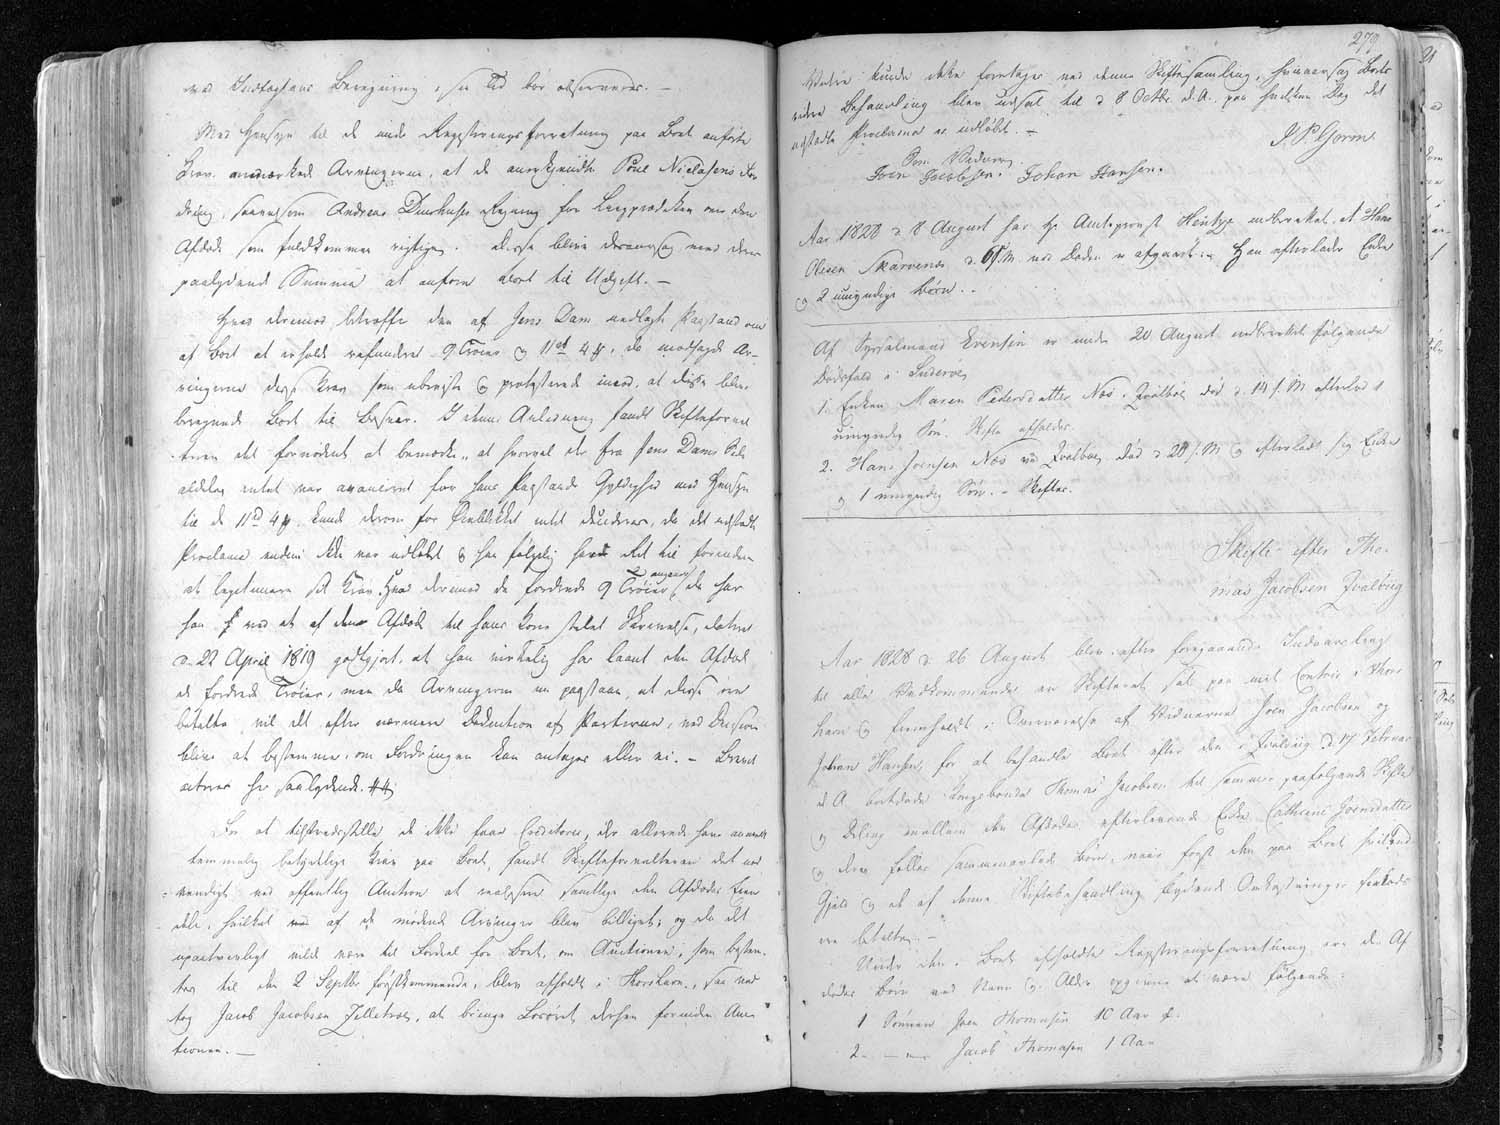 med Indtægtens Beregning, i sin Tid bør observeres. —
Med Hensyn til de under Registreringsforretning paa Boet anførte
Krav anmærkede Arvingerne, at de anerkjendte Poul Niclasens For-
dring, saavelsom Andreas Regning for Liigprædiken over den
Afdøde som fuldkommen rigtige. Disse bleve desaarsag med deres
paalydende Summa at anføre Boet til Udgift. —
Hvad derimod betræffer den af Jens Dam nedlagte Paastand om
af Boet at erholde refunderet 9 Trøier og 11 rd 4 ß, da modsagde Ar-
vingerne disse Krav som ubeviste og protesterede imod, at disse blev
beregnede Boet til Besvær. I denne Anledning fandt Skifteforval-
teren det fornødent at bemærke, at hvorvel der fra Jens Dams Side
aldeles intet var avanceret for hans Paastands Gyldighed med Hensyn
til de 11 rd 4 ß, kunde derom for Øieblikket intet decideres, da det udstedte
Proclama endnu ikke var udløbet og han følgelig havde Ret til forinden
at legitimere sit Krav. Hvad derimod de fordrede 9 Trøier angaaer, da har
han ved et af den Afdøde til hans Kone stilet Skrivelse, dateret
d. 22 April 1819 godtgjort, at han virkelig har laant den Afdøde
de fordrede Trøier, men da Arvingerne nu paastaae, at disse ere
betalte vil det efter nærmere Deduction af Parterne, ved Decision
blive at bestemme, om Fordringen kan antages eller ei. — Brevet
acteres her saalydende.
For at tilfredsstille de ikke faae Creditorer, der allerede have anmeldt
temmelig betydelige Krav paa Boet, fandt Skifteforvalteren det nød-
vendigt ved offentlig Auction at realisere samtlige den Afdødes Eien-
dele, hvilket af de mødende Arvinger blev billiget; og da det
upaatvivleligt vilde være til Fordeel for Boet, om Auctionen, som bestem-
tes til den 2 Septbr førstkommende, blev afholdt i Thorshavn, saa ved-
tog Jacob Jacobsen at bringe Løsøret dertil forinden Auc-
tionen. —
279
Videre kunde ikke foretages ved denne Skiftesamling, hvisaarsag Boets
videre Behandling blev udsat til d. 8 Octbr. d. A., paa hvilken Dag det
udstedte Proclama er udløbet. —
J. P. Gorm
Som Vidner
Joen Jacobsen. Johan Hansen.
Aar 1828 d. 8 August har Hr Amtsprovst Hentze indberettet, at Hans
Olesen Skarvenæs d. ved Døden er afgaaet. Han efterlader Enke
og 2 umyndige Børn.
Af Sysselmand Evensen er under 20 August indberettet følgende
Dødsfald i Suderøe
1. Enken Maren Pedersdatter Næs i Qvalbøe død d. 14 f. M. efterlod 1
umyndig Søn. Skifte afholdes.
2. Hans Joensen Næs ved Qvalbøe, død d. 20 f. M. og efterlod sig Enke
og 1 umyndig Søn. – Skiftes.
Skifte efter Tho-
mas Jacobsen Qvalvig
Aar 1828 d. 26 August blev efter foregaaende Indvarsling
til alle Vedkommende en Skifteret sat paa mit Contoir i Thors-
havn og fremholdt i Overværelse af Vidnerne Joen Jacobsen og
Johan Hansen, for at behandle Boet efter den i Qvalvig d. 17 Februar
d. A. bortdøde Kongsbonde Thomas Jacobsen til sammes paafølgende Skifte
og Deling mellem den Afdødes efterlevende Enke Cathrine Joensdatter
og deres fælles sammenavlede Børn, naar først den paa Boet hvilende
Gjeld og de af denne Skiftebehandling flydende Omkostninger
ere betalte. —
Under den i Boet afholdte Registreringsforretning ere de Af-
dødes Børn ved Navn og Alder opgivne at være følgende:
1 Sønnen Joen Thomasen 10 Aar g.
2 — — Jacob Thomasen 1 Aar